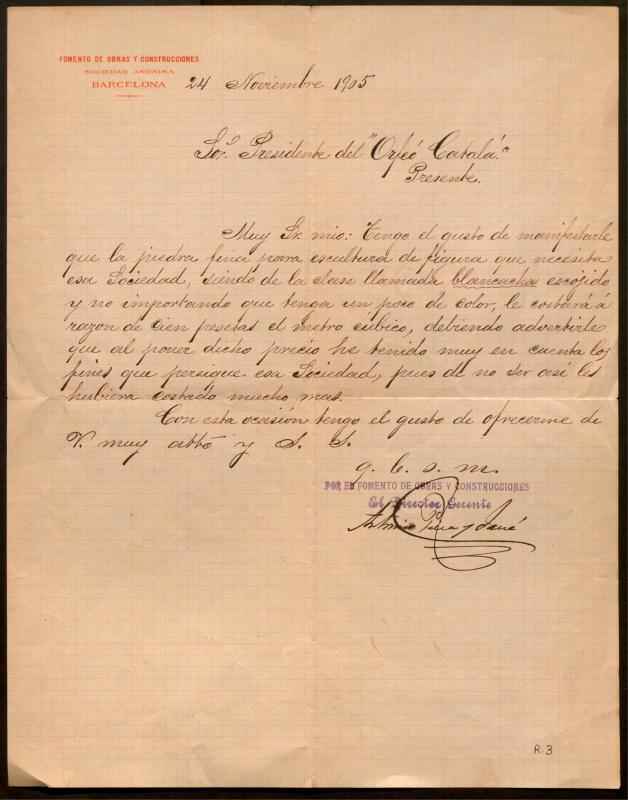 FOMENTO DE OBRAS Y CONSTRUCCIONES
SOCIEDAD ANÓNIMA
BARCELONA
24 Noviembre 1905
Sor. Presidente del "Orfeó Catalá."
Presente.
Muy Sr. mio: Tengo el gusto de manifestarle
que la piedra fina para escultura de figura que necesita
esa Sociedad, siendo de la clase llamada blancachos escojido
y no importando que tenga un poco de color, le costará á
razon de cien pesetas el metro cúbico, debiendo advertirle
que al poner dicho precio he tenido muy en cuenta los
fines que persigue esa Sociedad, pues de no ser asi les
hubiera costado mucho mas.
Con esta ocasión tengo el gusto de ofrecerme de
V. muy attō y S. S.
q. b. s. m.
POR EL FOMENTO DE OBRAS Y CONSTRUCCIONES
El Director Gerente
R.3